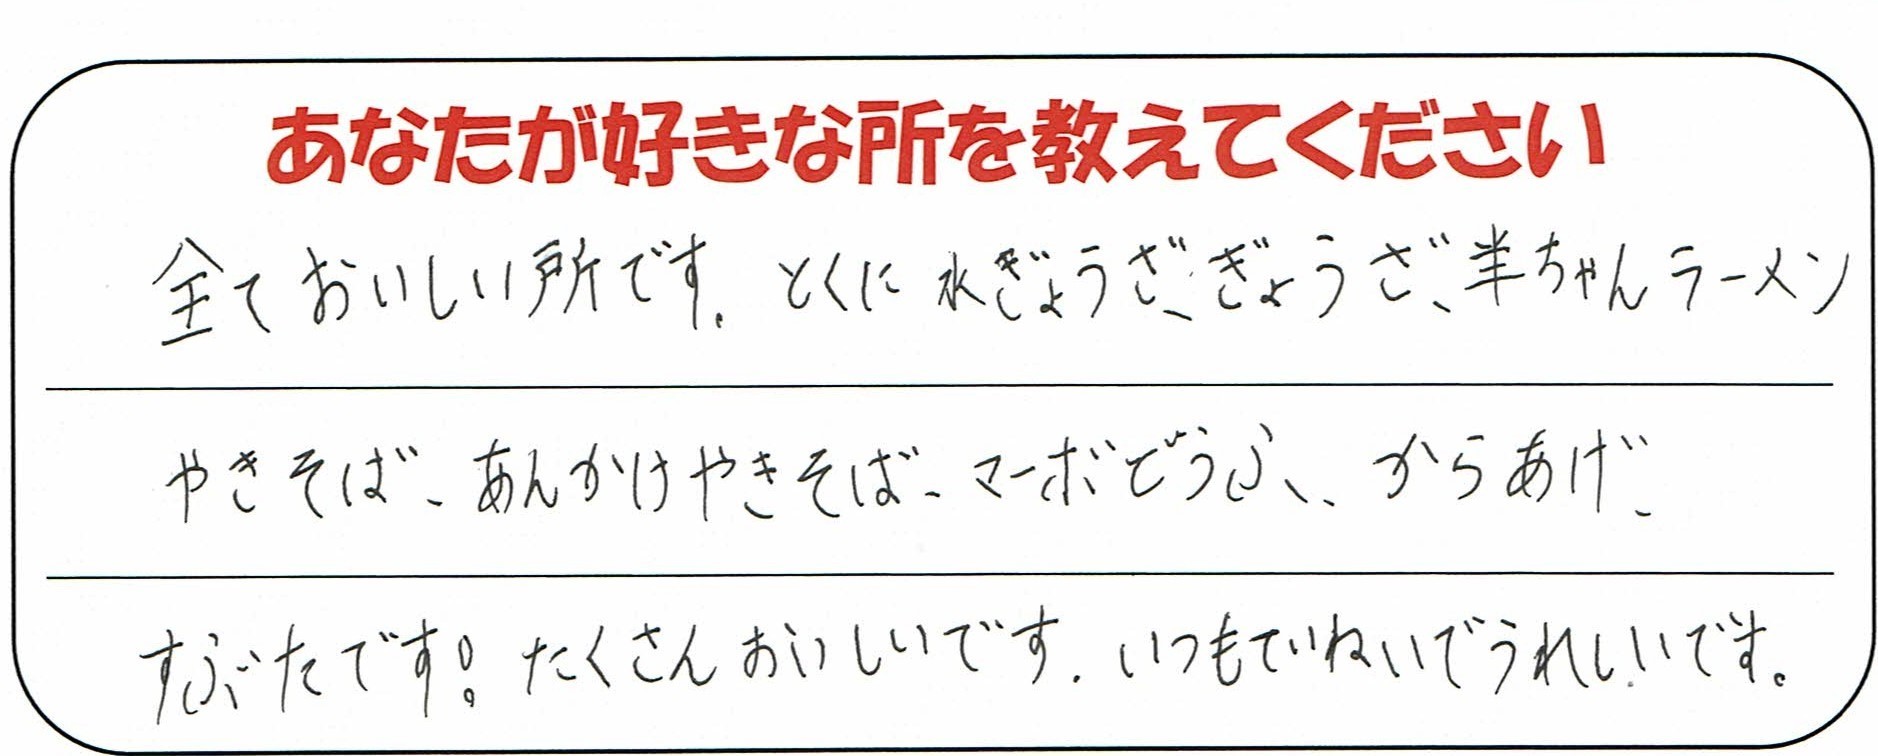 あなたが好きな所を教えてください
全ておいしい所です。とくに水ぎょうざ、ぎょうざ、羊ちゃんラーメン
やきそば、あんかけやきそば、マーボどうふ、からあげ、
すぶたです!たくさんおいしいです.いつもていねいでうれしいです。